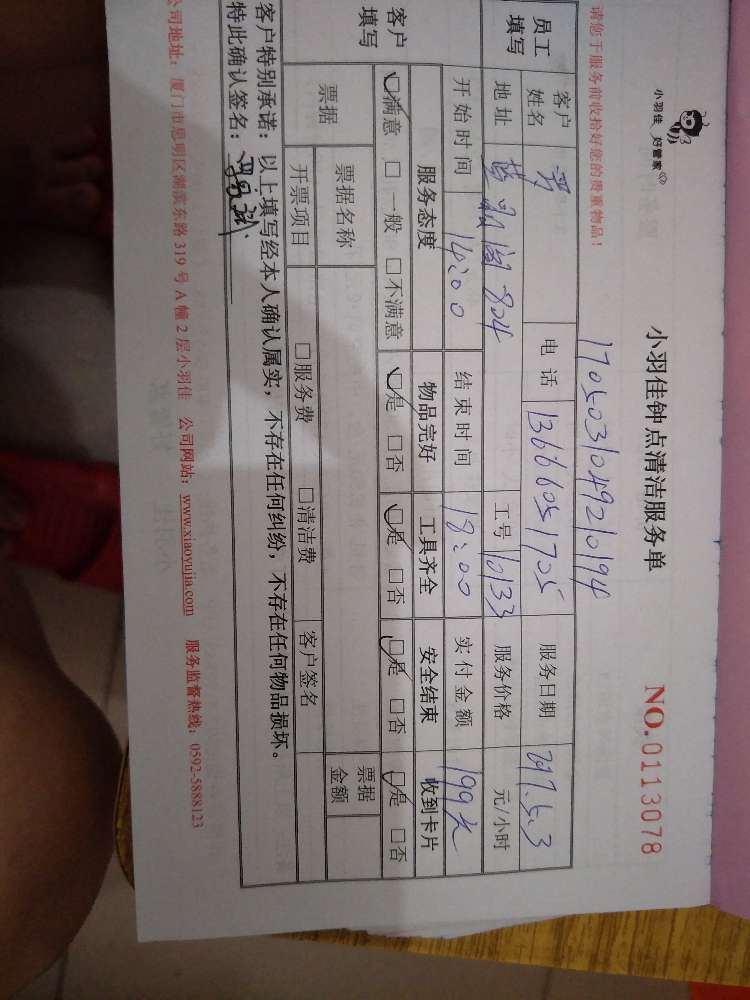 小羽佳 好管家
小羽佳钟点清洁服务单
NO.0113078
请您于服务前收拾好您的贵重物品!
170503104920194
员工填写
客户姓名 罗 电话 13666051705 服务日期 2017.5.3
地址 阁 804 工号 10133 服务价格 元/小时
开始时间 14:00 结束时间 18:00 实付金额 199元
客户填写
服务态度 物品完好 工具齐全 安全结束 收到卡片
☑满意 □一般 □不满意 ☑是 □否 ☑是 □否 ☑是 □否 ☑是 □否
票据 票据名称 票据金额
开票项目 □服务费 □清洁费 客户签名
客户特别承诺:以上填写经本人确认属实,不存在任何纠纷,不存在任何物品损坏。
特此确认签名:
公司地址:厦门市思明区湖滨东路 319 号 A 幢 2 层小羽佳 公司网站:www.xiaoyujia.com 服务监督热线:0592-5888123